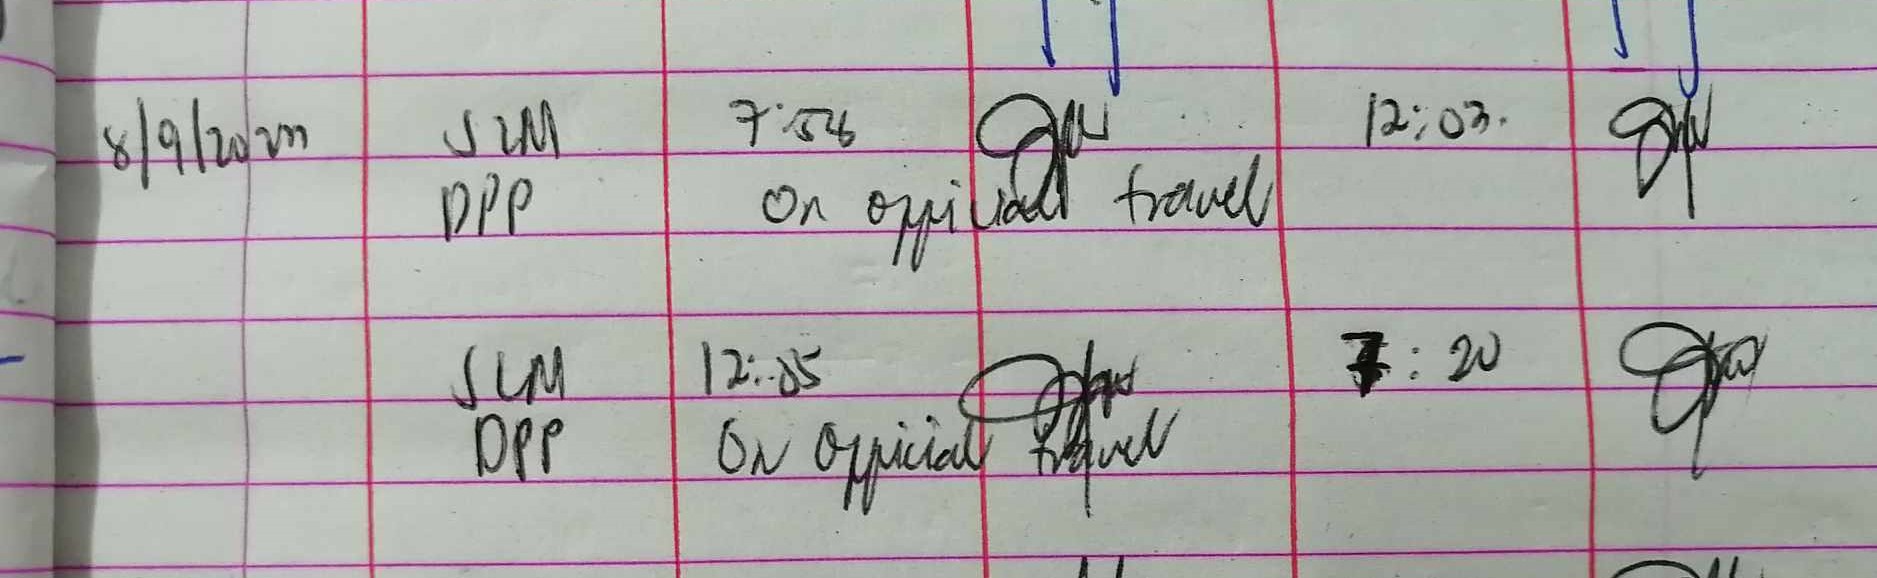 8/9/2022 SLM 7:54 12:03.
DPP On official travel
SLM 12:05 7:20
DPP On official travel